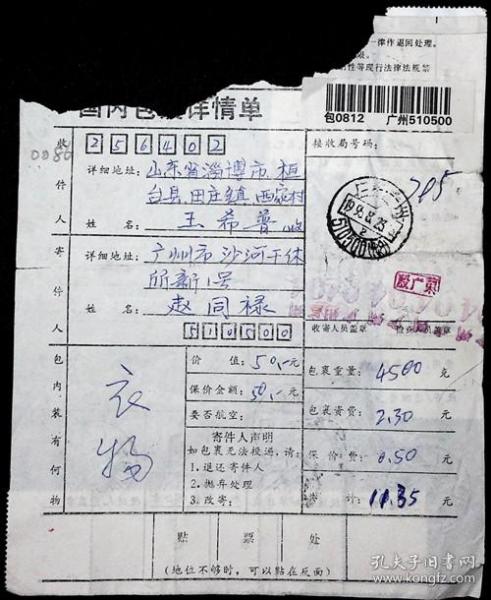 律作退回处理。
性等现行法律法规禁
包0812 广州510500
国内包裹详情单
收件人
256402
0086
详细地址：山东省淄博市桓
台县田庄镇西家村
姓名：王希普 收
接收局号码：
705
寄件人
详细地址：广州市沙河干休
所新1号
姓名：赵同禄
510500
收寄人员盖章
包内装有何物
衣物
价值：50.-元
保价金额：50.-元
要否航空：
寄件人声明
如包裹无法投递，请：
1.退还寄件人
2.抛弃处理
3.改寄：
包裹重量：4500克
包裹资费：2.30元
保价费：0.50元
共计：11.35元
贴票处
(地位不够时，可以黏在反面)
孔夫子旧书网
kongfz.com